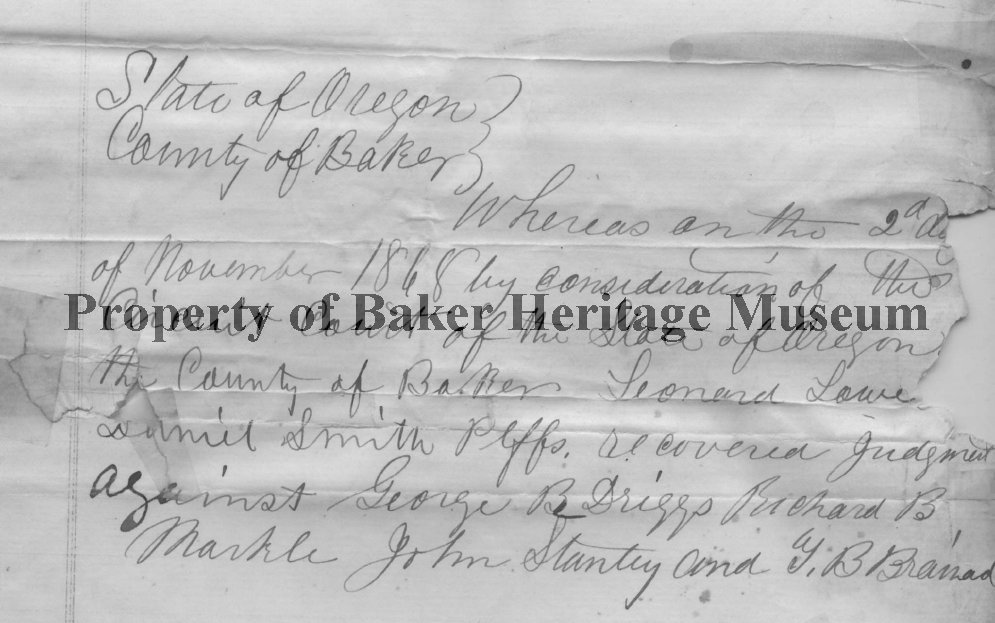 State of Oregon }
County of Baker }
Whereas on the 2d
of November 1868 by consideration of the
Property of Baker Heritage Museum
Circuit Court of the State of Oregon
the County of Baker Leonard Lowe
Daniel Smith Plffs. recovered Judgment
against George B Driggs Richard B
Markle John Stanley and Y. B Brainad